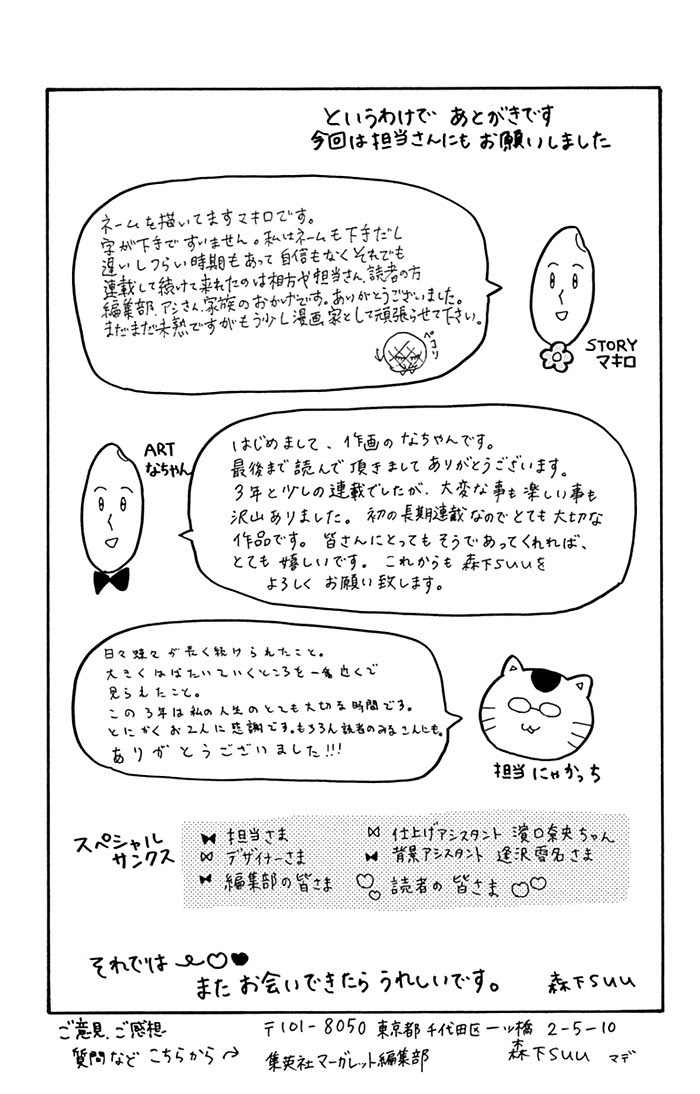 というわけで あとがきです
今回は担当さんにも お願いしました
ネームを描いてますマキロです。
字が下手ですいません。私はネームも下手だし
遅いしつらい時期もあって自信もなくそれでも
連載して続けて来れたのは相方や担当さん、読者の方
編集部、アシさん、家族のおかげです。ありがとうございました。
まだまだ未熟ですがもう少し漫画家として頑張らせて下さい。
ペコリ
STORY
マキロ
ART
なちゃん
はじめまして、作画の なちゃんです。
最後まで 読んで 頂きまして ありがとうございます。
3年と少しの連載でしたが、大変な事も楽しい事も
沢山ありました。 初の長期連載なのでとても大切な
作品です。 皆さんにとっても そうであってくれれば、
とても 嬉しいです。 これからも 森下suuを
よろしく お願い致します。
日々蝶々が長く続けられたこと。
大きくはばたいていくところを一番近くで
見られたこと。
この3年は私の人生のとても大切な時間です。
とにかくお2人に感謝です。もちろん読者のみなさんにも。
ありがとうございました!!!
担当 にゃかっち
スペシャル
サンクス
担当さま
デザイナーさま
編集部の皆さま
仕上げアシスタント 濱口奈央ちゃん
背景アシスタント 逢沢雪名さま
読者の 皆さま
それでは
また お会いできたら うれしいです。 森下suu
ご意見、ご感想
質問など こちらから→
〒101-8050 東京都千代田区一ツ橋 2-5-10
集英社マーガレット編集部 森下suu マデ